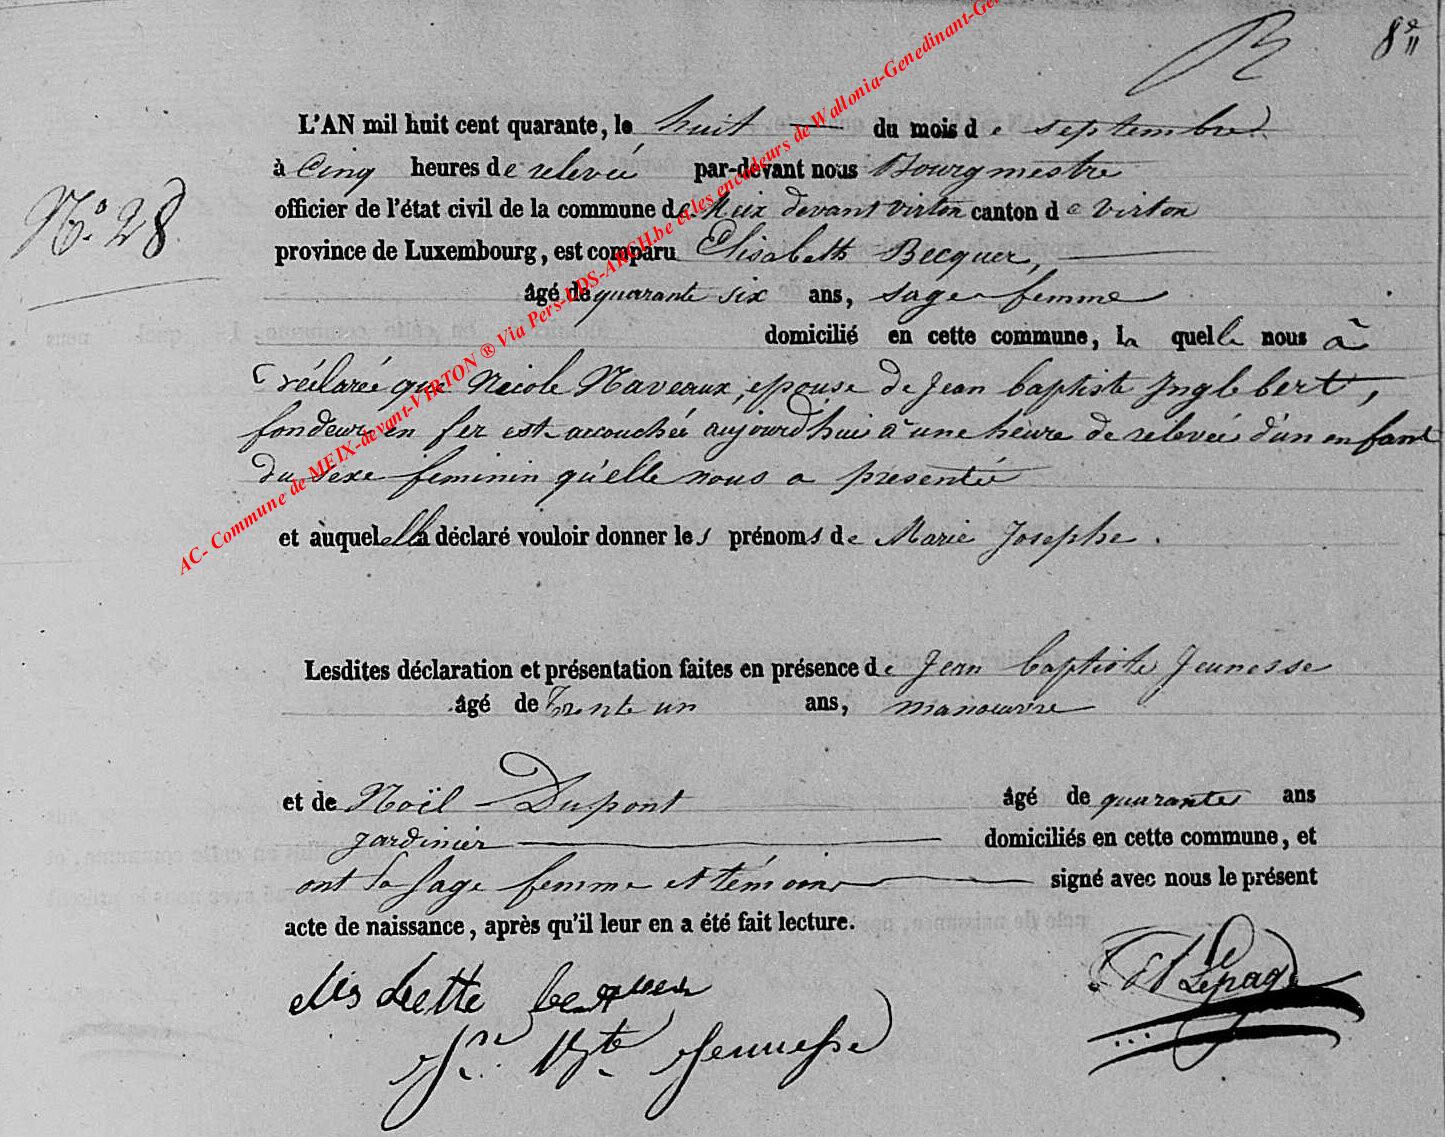 8e
L'AN mil huit cent quarante, le huit du mois de septembre
à Cinq heures de relevée par-devant nous Bourgmestre
N.o 28
officier de l'état civil de la commune de Meix devant virton canton de virton
province de Luxembourg, est comparu Elisabeth Becquer,
âgé de quarante six ans, sage femme
domicilié en cette commune, la quelle nous à
déclarée que Nicole Naveaux, epouse de Jean baptiste Inglebert,
fondeur en fer est accouchée aujourd'hui à une heure de relevée d'un enfant
du sexe feminin qu'elle nous a presentée
et auquel ella déclaré vouloir donner les prénoms de Marie Josephe.
Lesdites déclaration et présentation faites en présence de Jean baptiste Jeunesse
âgé de Trente un ans, manoeuvre
et de Noël Dupont âgé de quarante ans
jardinier domiciliés en cette commune, et
ont la sage femme et témoins signé avec nous le présent
acte de naissance, après qu'il leur en a été fait lecture.
elis abette becquer
Lepage
Jn Bte Jeunesse
AC- Commune de MEIX-devant-VIRTON ® Via Pers-UDS-ARCH.be et les encodeurs de Wallonia-Genedinant-Ge